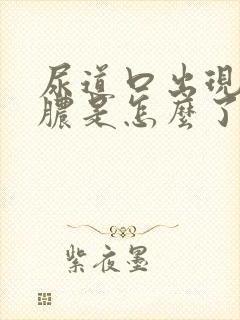 尿道口出現
膿是怎麼了
紫夜墨